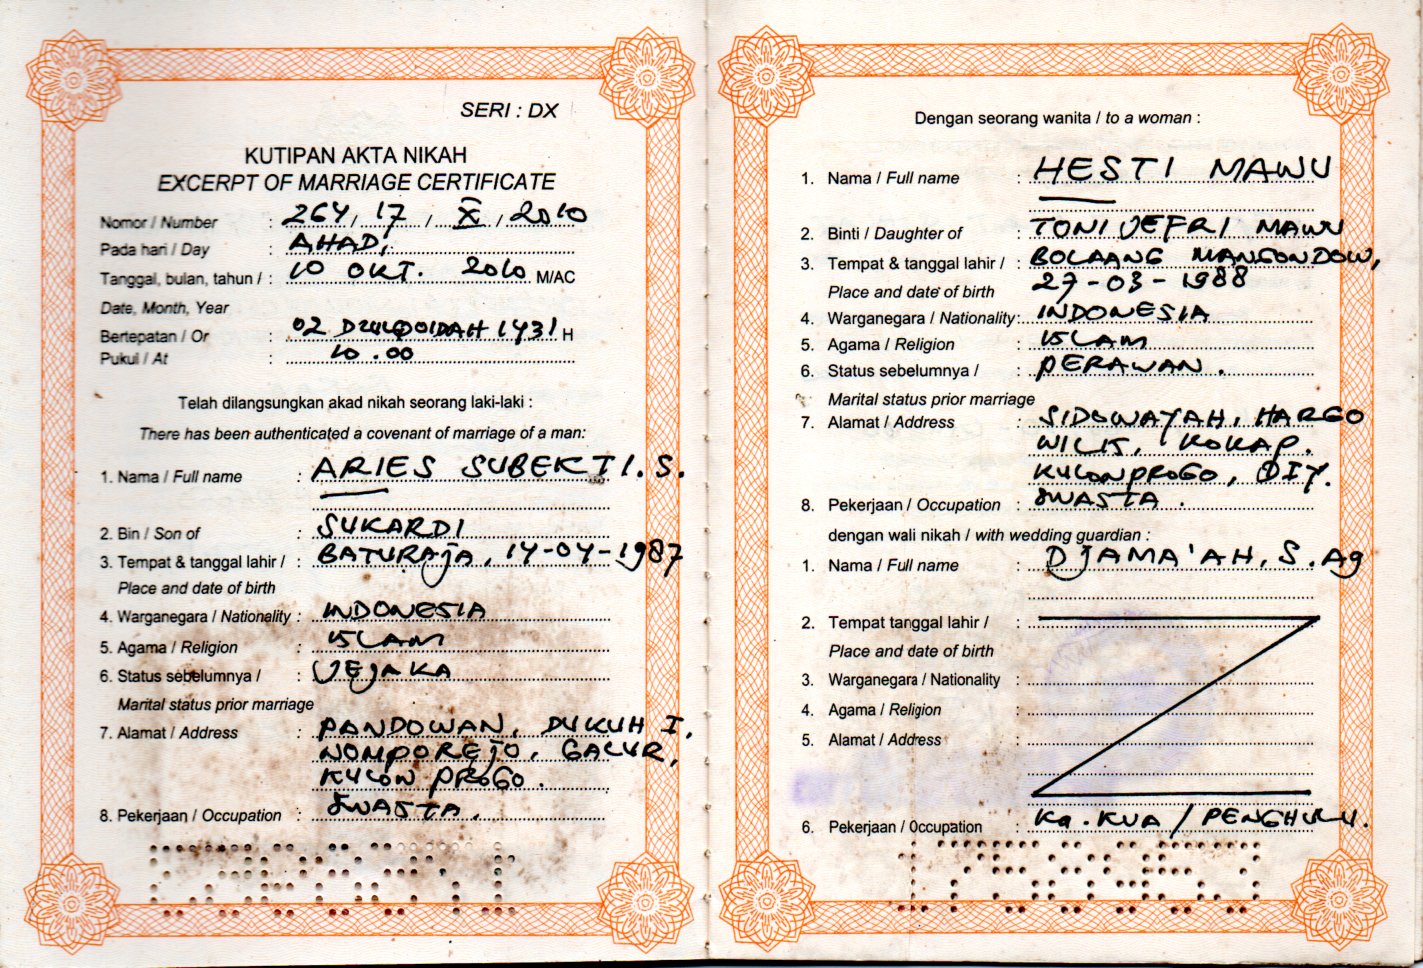 SERI : DX
KUTIPAN AKTA NIKAH
EXCERPT OF MARRIAGE CERTIFICATE
Nomor / Number : 264, 17 / X , 2010
Pada hari / Day : AHAD,
Tanggal, bulan, tahun / : 10 OKT. 2010 M/AC
Date, Month, Year
Bertepatan / Or : 02 DZULQOIDAH 1431 H
Pukul / At : 10.00
Telah dilangsungkan akad nikah seorang laki-laki :
There has been authenticated a covenant of marriage of a man:
1. Nama / Full name : ARIES SUBEKTI. S.
2. Bin / Son of : SUKARDI
3. Tempat & tanggal lahir / : BATURAJA, 14-04-1987
Place and date of birth
4. Warganegara / Nationality : INDONESIA
5. Agama / Religion : ISLAM
6. Status sebelumnya / : JEJAKA
Marital status prior marriage
7. Alamat / Address : PANDOWAN, DUKUH I,
NOMPOREJO, GALUR,
KULON PROGO.
8. Pekerjaan / Occupation : SWASTA.
Dengan seorang wanita / to a woman :
1. Nama / Full name : HESTI MAWU
2. Binti / Daughter of : TONI JEFRI MAWU
3. Tempat & tanggal lahir / : BOLAANG MANGONDOW,
Place and date of birth 27-03-1988
4. Warganegara / Nationality : INDONESIA
5. Agama / Religion : ISLAM
6. Status sebelumnya / : PERAWAN.
Marital status prior marriage
7. Alamat / Address : SIDOWAYAH, HARGO
WILIS, KOKAP.
KULONPROGO, DIY.
8. Pekerjaan / Occupation : SWASTA.
dengan wali nikah / with wedding guardian :
1. Nama / Full name : DJAMA'AH, S.Ag
2. Tempat tanggal lahir / :
Place and date of birth
3. Warganegara / Nationality :
4. Agama / Religion :
5. Alamat / Address :
6. Pekerjaan / Occupation : Ka. KUA / PENGHULU.